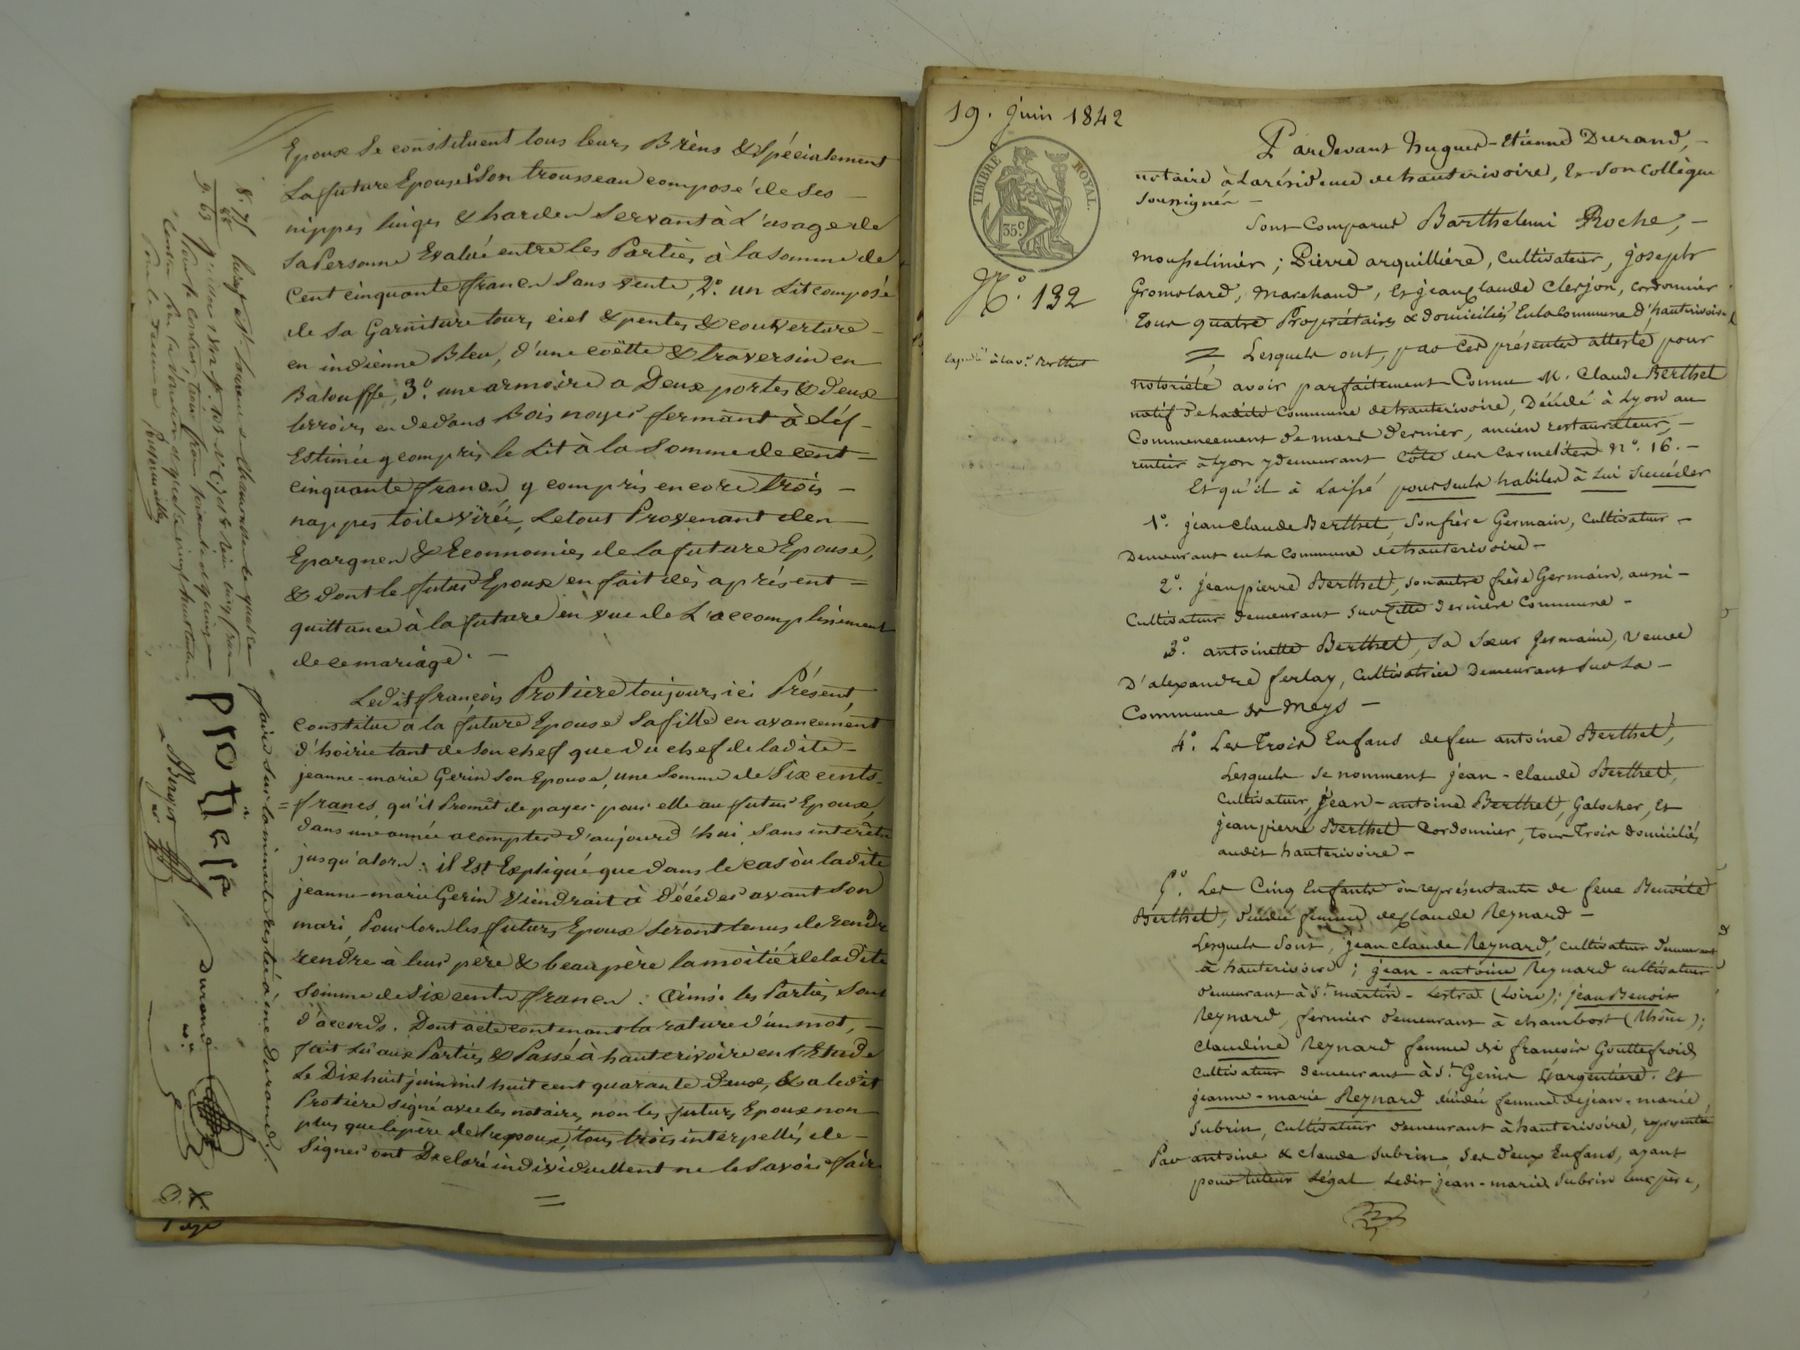 Epoux se constituent tous leurs Biens & spécialement
la future Epouse 1° Son trousseau composé de ses
nippes linges & hardes servant à l'usage de
sa Personne Evalué entre les Parties à la somme de
Cent cinquante francs sans vente, 2° un Lit composé
de sa Garniture tour, ciel & pentes & couverture
en indienne Bleu, d'une coëtte & traversin en
Balouffe, 3° une armoire a Deux portes & deux
tirroirs en dedans Bois noyer fermant à cléf
Estimée y compris le Lit à la Somme de cent
cinquante francs y compris encore trois
nappes toile virés, Le tout Provenant des
Epargnes & Econnomies de la future Epouse,
& dont le futur Epoux en fait dès à présent
quittance à la future en vue de L'accomplissement
de ce mariage.
Ledit françois Protière toujours ici Présent,
constitue à la future Epouse sa fille en avancement
d'hoirie tant de son chef que du chef de ladite
jeanne-marie Gerin son Epouse, une Somme de Six cents
francs, qu'il Promet de payer pour elle au futur Epoux,
dans une année a compter d'aujourd'hui, Sans intérêts
jusqu'alors : il Est Expliqué que dans le cas où ladite
jeanne-marie Gerin viendrait à décéder avant son
mari, Pour lors les futurs Epoux seront tenus de rendre
rendre à leur pere & beaupère la moitié de ladite
Somme de Six cents francs : Ainsi les Parties sont
d'accords. Dont acte contenant la rature d'un mot,
fait Lu aux Parties & Passé à hauterivoire en l'Etude
Le Dix huit juin mil huit cent quarante deux, & a ledit
Protière signé avec les notaires, non les futurs Epoux non
plus que le père de l'epoux, tous trois interpellés de
Signer ont Déclaré individuellement ne le savoir faire
faire sur la minute restée à me Durand.
Protiere
Durand
19. Juin 1842
TIMBRE ROYAL.
35 c
N° 132
Pardevant hugues-Etienne Durand,
notaire à la résidence de hauterivoire, Et son Collègue
soussignés
Sont Comparus Barthelemi Roche,
mousselinier ; Pierre arquillière, cultivateur, joseph
Gromolard, marchand, Et jean claude Clerjon, cordonnier
tous quatre Propriétaires & domiciliés En la commune d'hauterivoire
Lesquels ont, par ces présentes attesté pour
notoriété avoir parfaitement Connu M. Claude Berthet
natif de ladite Commune de hauterivoire, Décédé à Lyon au
Commencement de mars dernier, ancien restaurateur,
rentier à Lyon y demeurant Côte des Carmelites N° 16.
Et qu'il à Laissé pour seuls habiles à Lui Succéder
1° jean claude Berthet, son frère Germain, cultivateur
Demeurant en la Commune de hauterivoire
2° jean pierre Berthet, son autre frère Germain, aussi
Cultivateur demeurant sur cette derniere Commune
3° antoinette Berthet, sa sœur Germaine, veuve
D'alexandre ferlay, cultivatrice Demeurant sur la
Commune de Meys
4° Les trois Enfans de feu antoine Berthet,
Lesquels se nomment jean-claude Berthet,
Cultivateur, jean-antoine Berthet, Galocher, Et
jean pierre Berthet Cordonnier, tous trois domiciliés
audit hauterivoire
5° Les Cinq Enfants ou représentants de feue Benoîte
Berthet, décédée femme de claude Reynard
Lesquels sont, jean claude Reynard, cultivateur demeurant
à hauterivoire ; jean-antoine Reynard cultivateur
demeurant à St martin-Lestra (Loire) ; jean Benoit
Reynard, fermier demeurant à chambost (Rhône) ;
claudine Reynard femme de françois Gouttefroid
cultivateur demeurant à St Genis L'argentière. Et
jeanne-marie Reynard décédée femme de jean-marie
Subrin, cultivateur demeurant à hauterivoire, représentée
Par antoine & claude Subrin, ses deux Enfans, ayant
pour tuteur Légal Ledit jean-marie Subrin leur père,